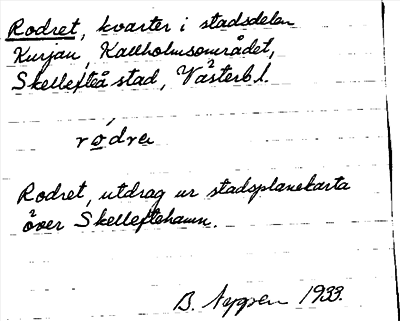 Rodret, kvarter i stadsdelen
Kurjan, Kallholmsområdet,
Skellefteå stad, Västerb l.
rodrə
Rodret, utdrag ur stadsplanekarta
över Skelleftehamn.
B. 1933.